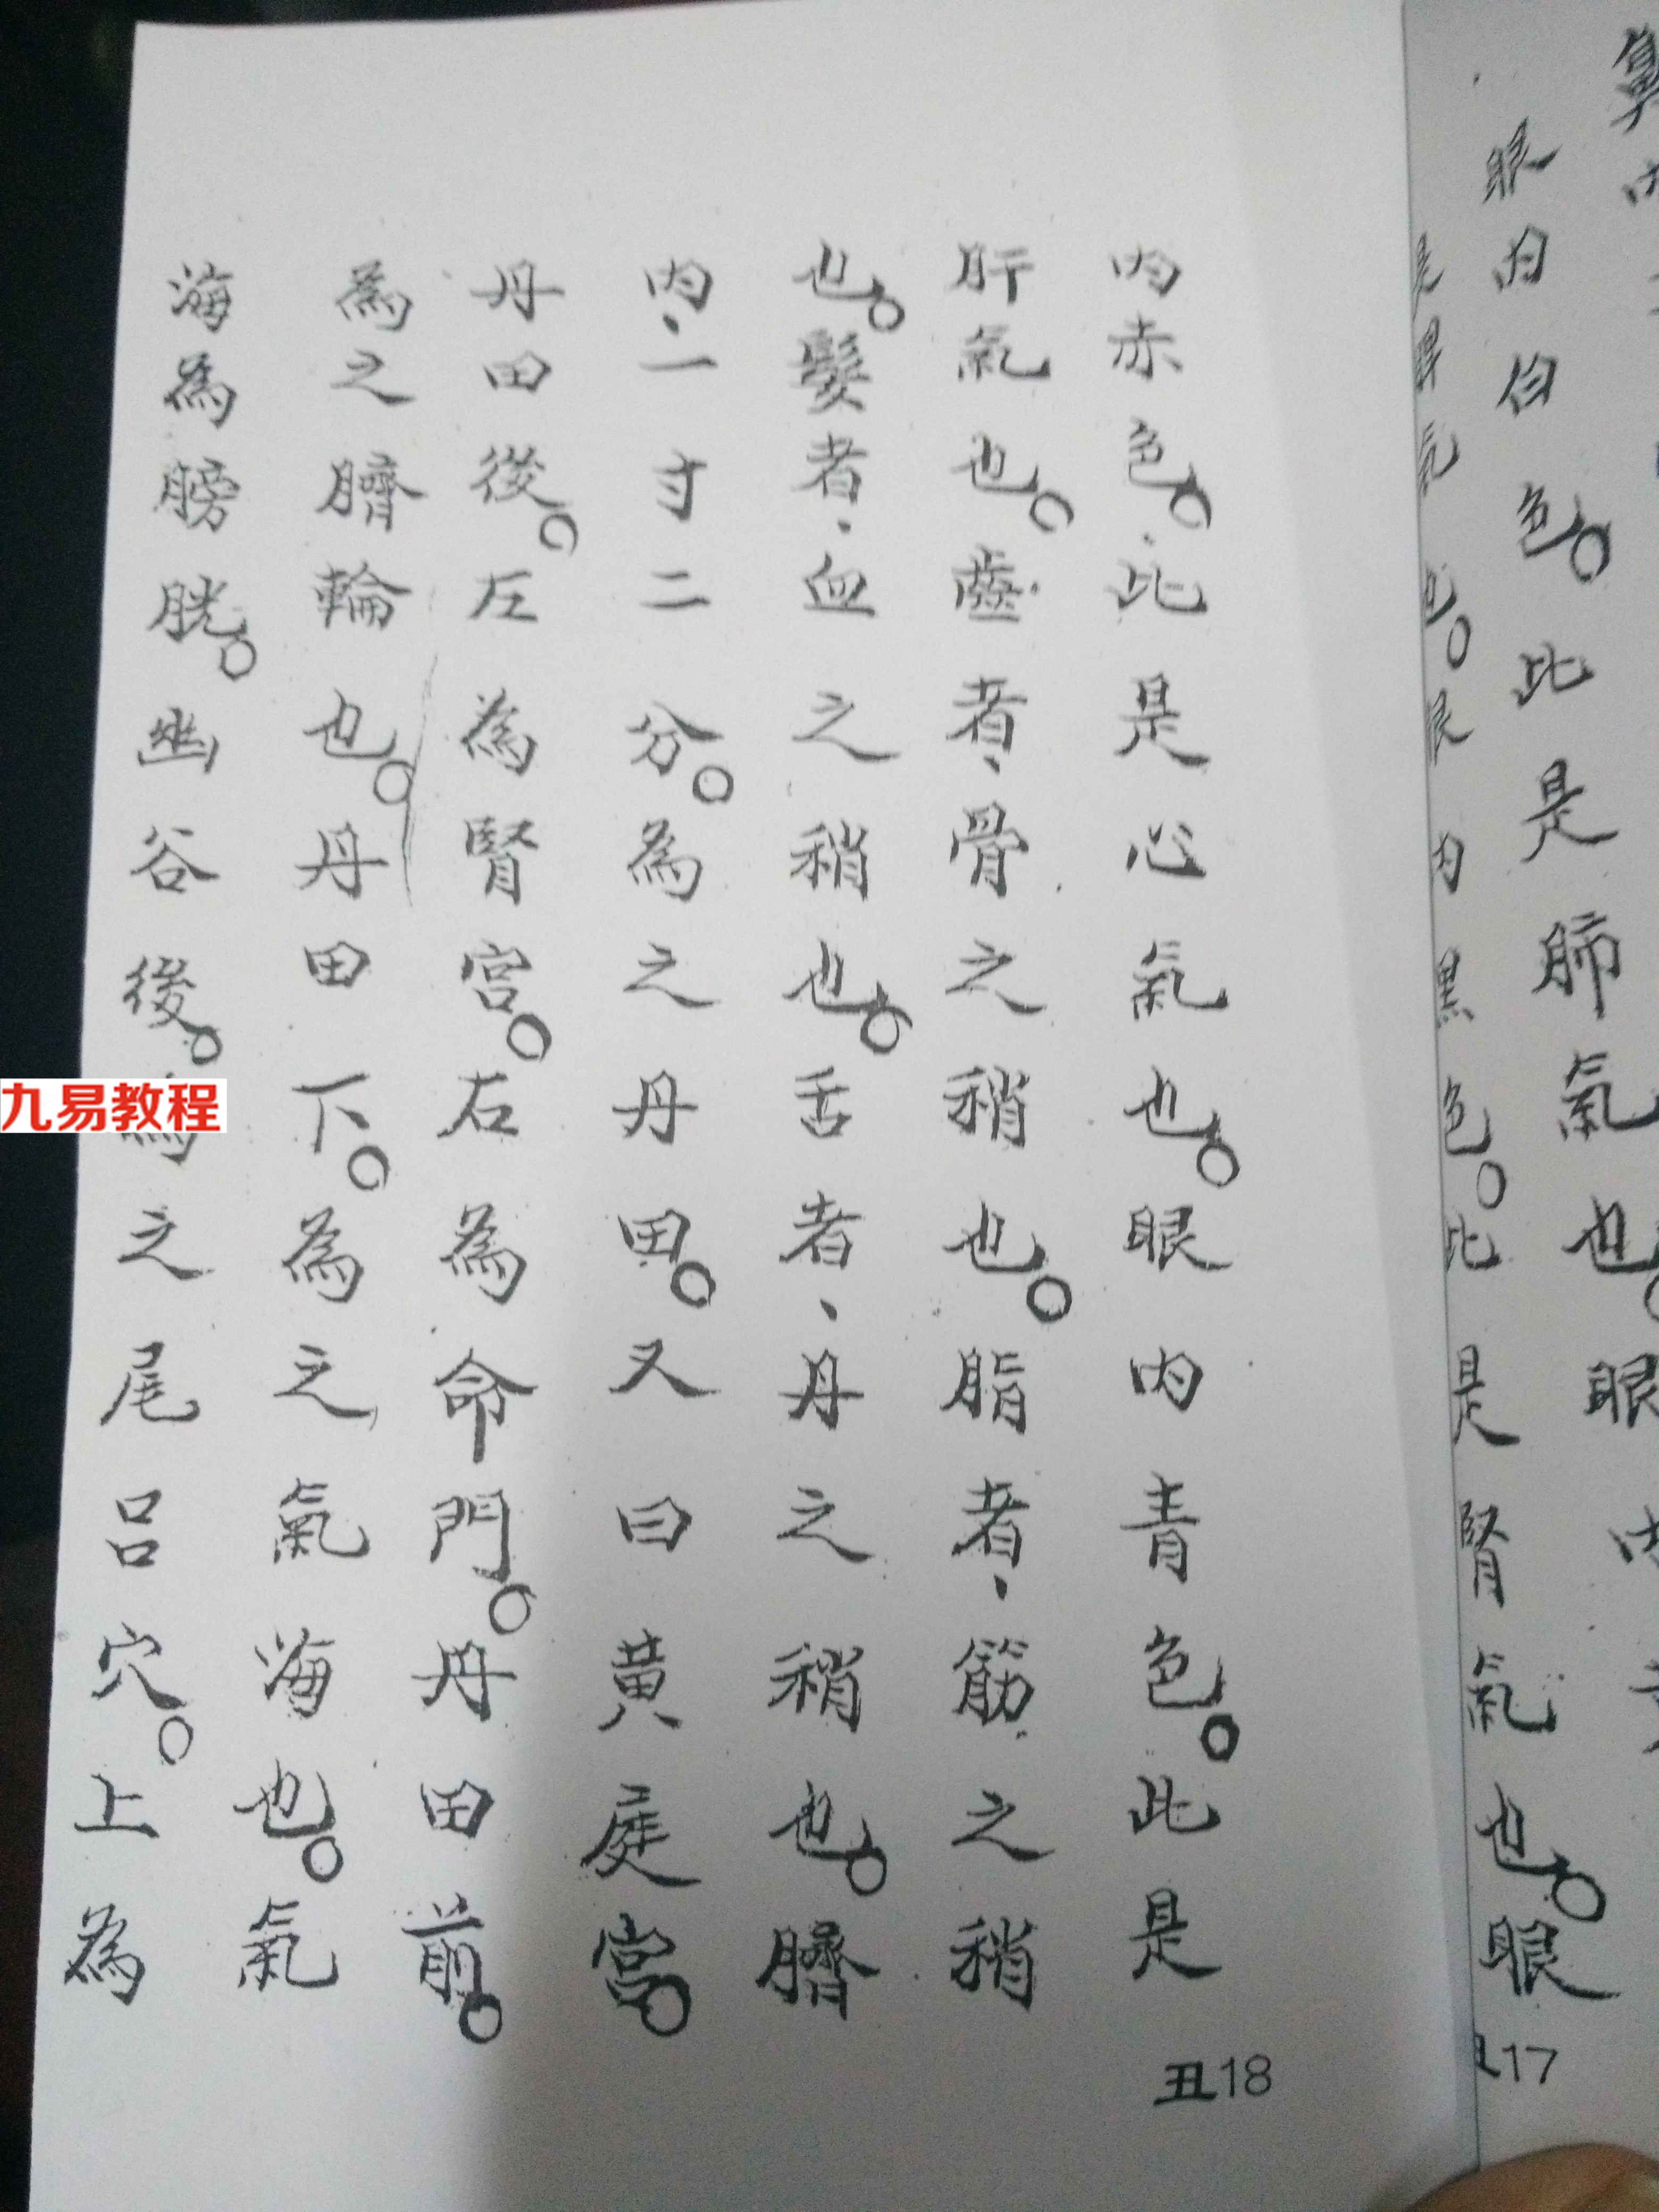 眼内白色。比是肺氣也。眼
内黑色。比是腎氣也。眼
丑17
内赤色。比是心氣也。眼内青色。此是
肝氣也。齒者、骨之稍也。脂者、筋之稍
也。髮者、血之稍也。舌者、丹之稍也。臍
内、一寸二分。為之丹田。又曰黃庭宮。
丹田後。左為腎宮。右為命門。丹田前。
為之臍輪也。丹田下。為之氣海也。氣
海為膀胱。幽谷後。為之尾呂穴。上為
丑18
九易教程